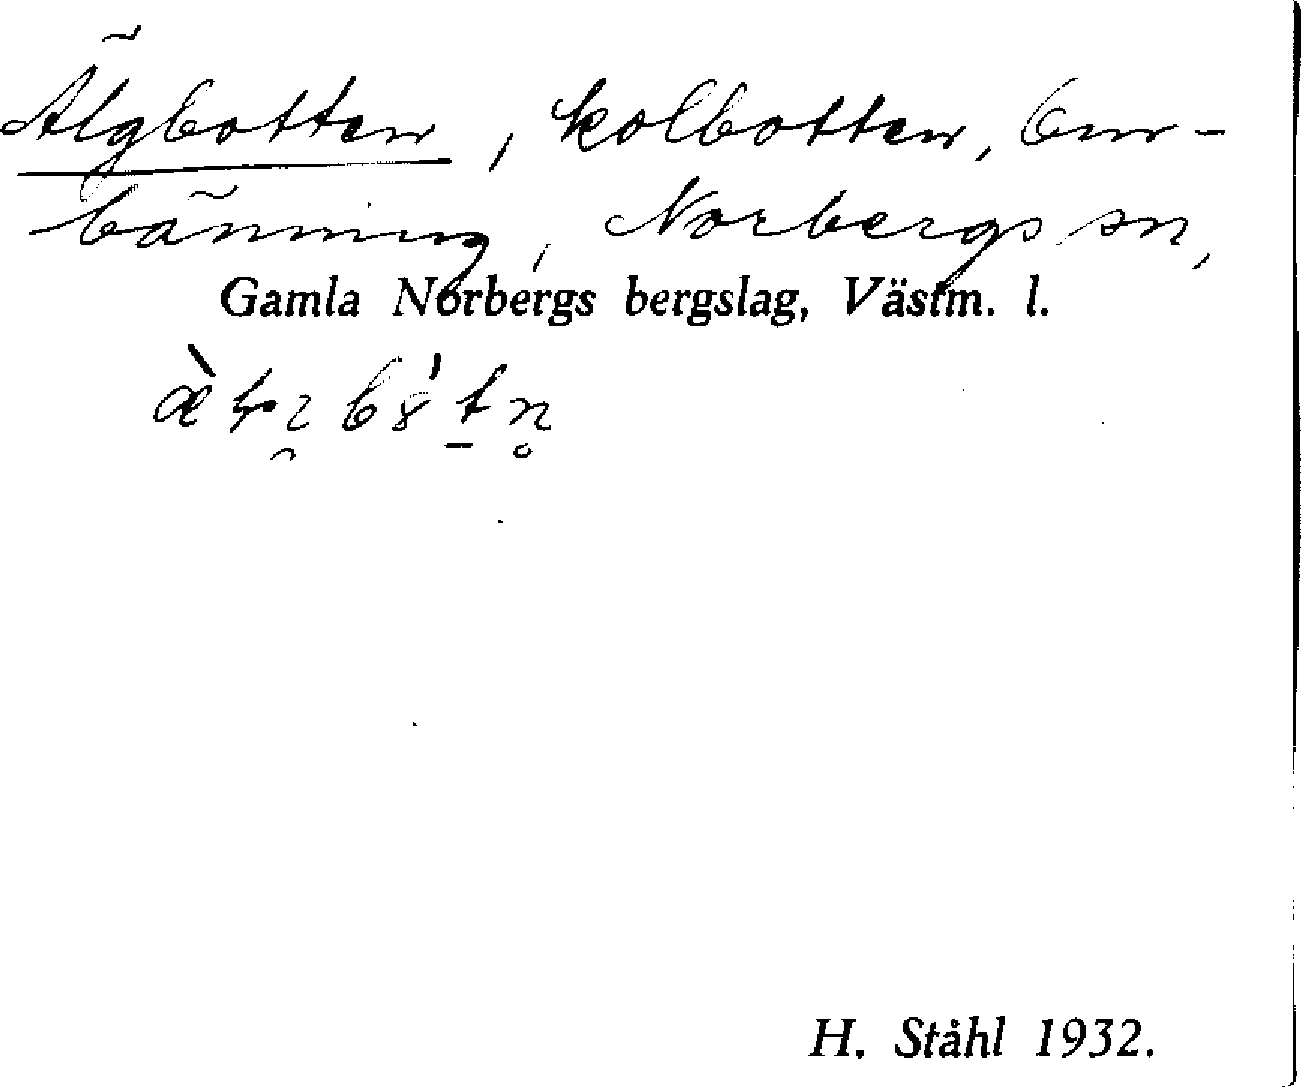 Älgbotten, kolbotten, Bur-
bänning, Norbergs sn,
Gamla Norbergs bergslag, Västm. l.
H. Ståhl 1932.